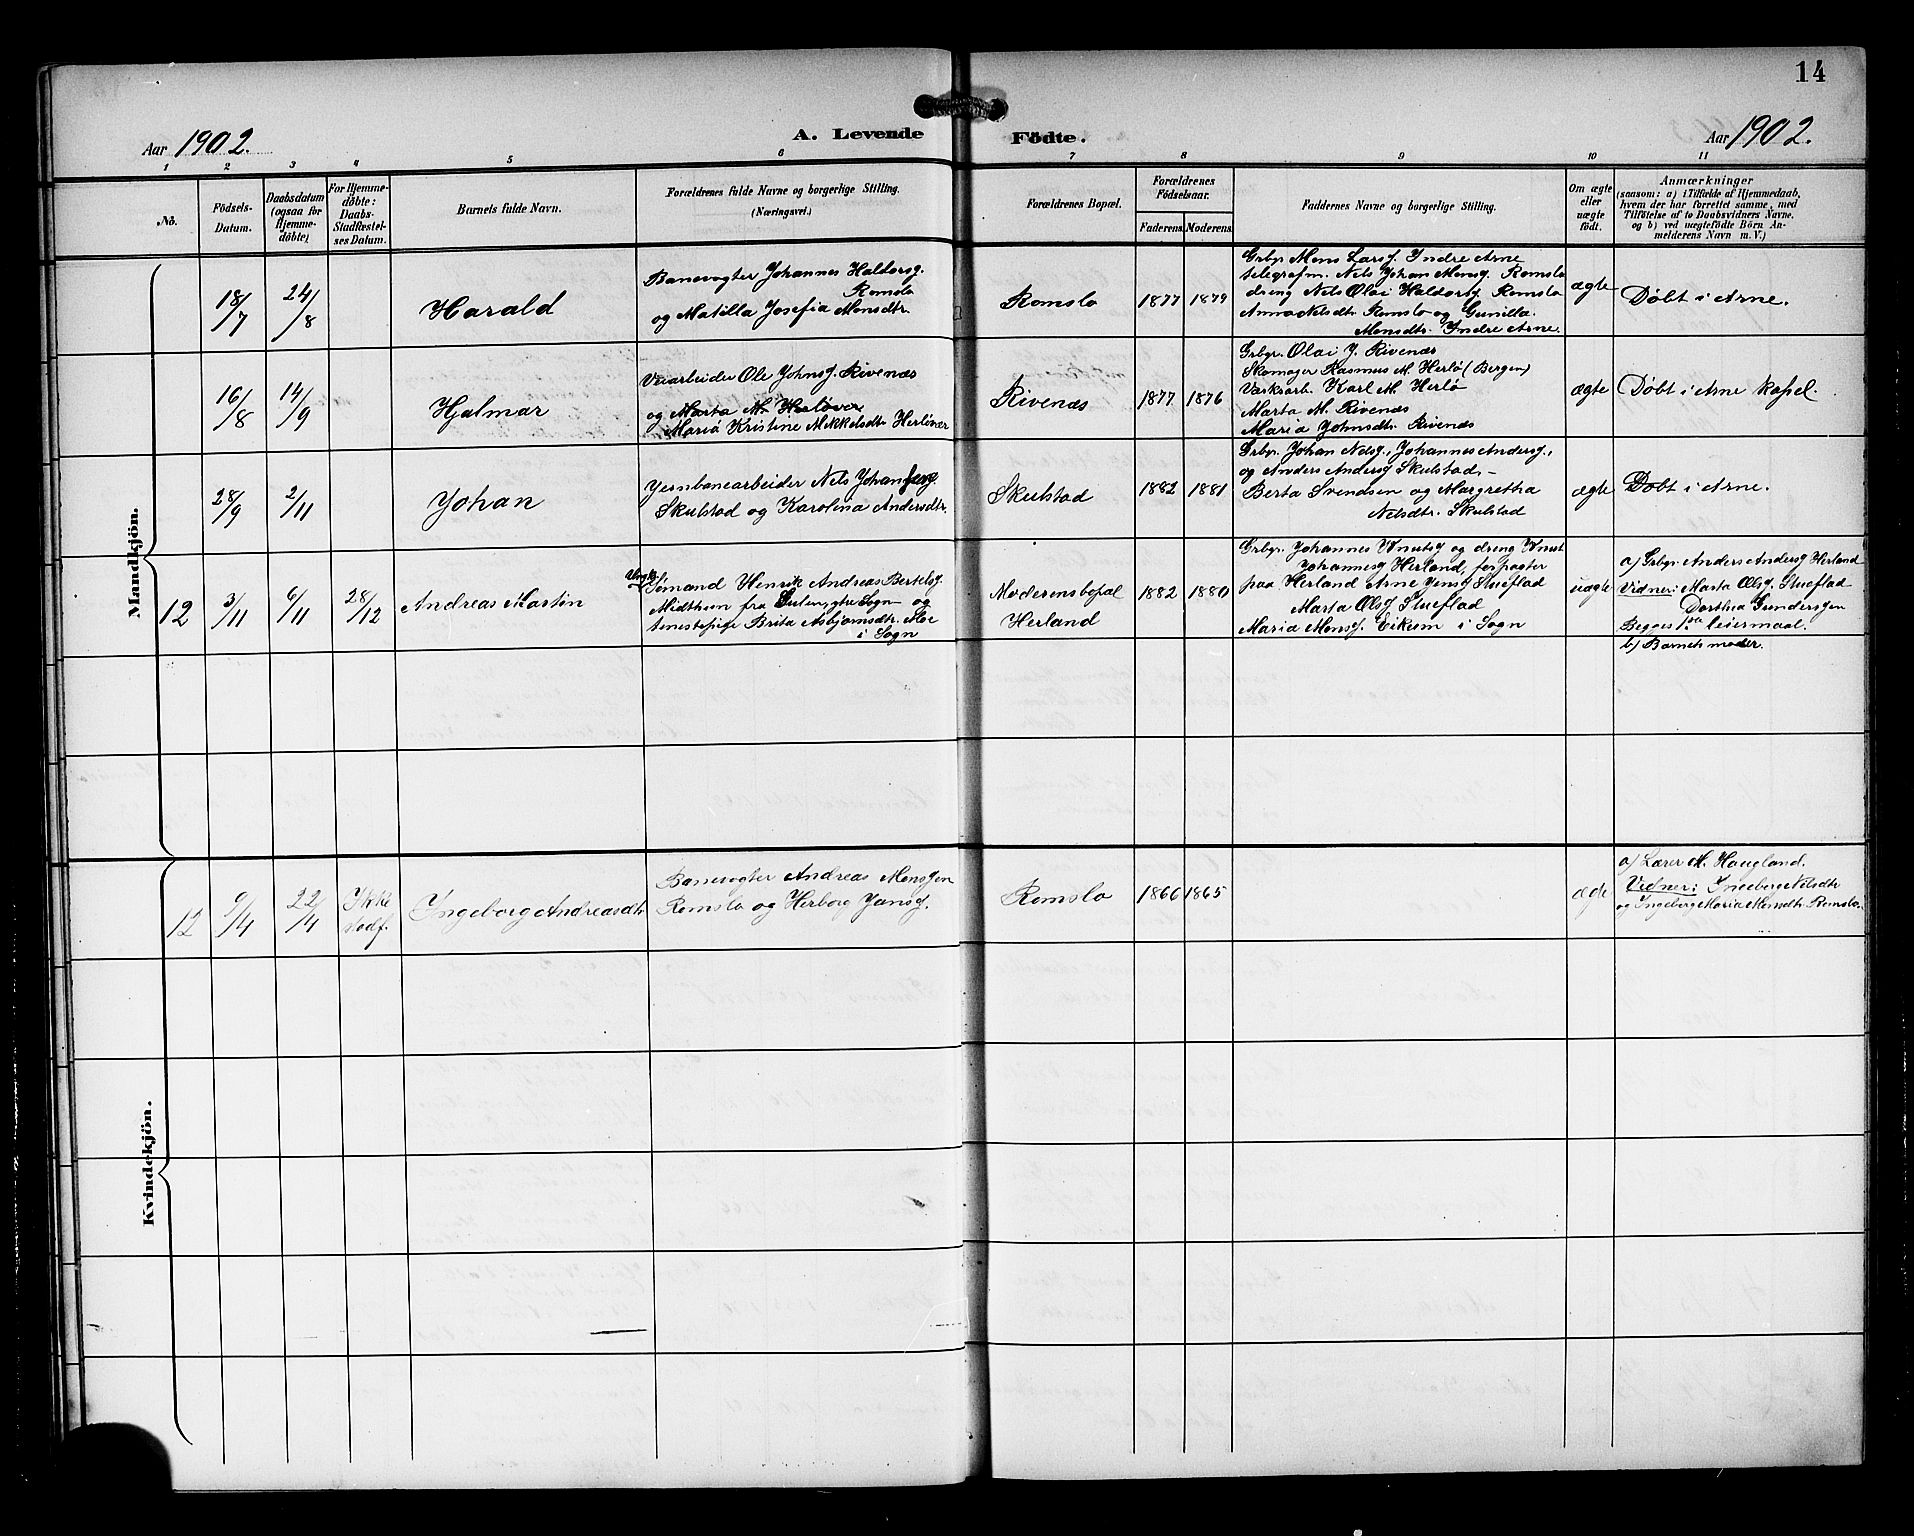 14
Aar 1902.
A. Levende Födte.
Aar 1902.
1 2 3 4 5 6 7 8 9 10 11
No.
Födsels-
Datum.
Daabsdatum
(ogsaa for
Hjemme-
döbte)
For Hjemme-
döbte:
Daabs-
Stadfæstel-
ses Datum.
Barnets fulde Navn.
Forældrenes fulde Navne og borgerlige Stilling.
(Næringsvei.)
Forældrenes Bopæl.
Forældrenes
Födselsaar.
Faderens. Moderens.
Faddernes Navne og borgerlige Stilling.
Om ægte
eller
uægte
födt.
Anmærkninger
(saasom: a) i Tilfælde af Hjemmedaab,
hvem der har forrettet samme, med
Tilföielse af to Daabsvidners Navne,
og b) ved uægtefödte Börn An-
melderens Navn m. V.)
Mandkjön.
18/7
24/8
Harald
Banevogter Johannes Haldorsg.
Romslo
og Matilla Josefia Monsdtr.
Romslo
1877 1879
Grbr. Mons Larsg. Indre Arne
telegrafm. Nels Johan Monsg. Romslo
dreng Nels Olai Haldorsg. Romslo
Anna Nelsdtr. Romslo og Gunilla
Monsdtr. Indre Arne.
ægte
Döbt i Arne.
16/8
14/9
Hjalmar
Veiarbeider Ole Johnsg. Rivenæs
og Marta M. Herlöver
Maria Kristine Mikkelsdtr Herlövær
Rivenæs
1877 1876
Grbgr. Olai J. Rivenæs
Skomager Rasmus M. Herlö (Bergen)
Værksarb. Karl M. Herlö
Marta M. Rivenæs
Maria Johnsdtr. Rivenæs
ægte
Döbt i Arne kapel.
28/9
2/11
Johan
Jernbanearbeider Nels Johansg
Skulstad og Karolina Andersdtr.
Skulstad
1882 1881
Grbgr. Johan Nelsg., Johannes Andersg.,
og Anders Andersg Skulstad –
Berta Svendsen og Margretha
Nelsdtr. Skulstad
ægte
Döbt i Arne.
12
3/11
6/11
28/12
Andreas Martin
Ungk. Sömand Henrik Andreas Bertelsg.
Midthun fra Sulen, ytre Sogn og
tenestepige Brita Asbjørnsdtr. Moe
i Sogn
Moderens bopæl
Herland
1882 1880
Grbgr. Johannes Knutsg og dreng Knut
Johannesg Herland, forpagter
paa Herland Arne Jensg Stueflad
Marta Olsg Stueflad
Maria Monsg. Eikum i Sogn
uægte
a) Grbgr. Anders Andersg Herland
Vidner: Marta Olsg. Stueflad
Dorthea Gundersgen
Begges 1ste leiermaal.
b) Barnets moder.
Kvindekjön.
12
9/4
22/4
Ikke
stadf.
Ingeborg Andreasdtr
Banevogter Andreas Monsgen
Romslo og Herborg Jansg.
Romslo
1866 1865
ægte
a) Lærer M. Haugland.
Vidner: Ingeborg Nelsdtr
og Ingeborg Maria Monsdtr. Romslo.